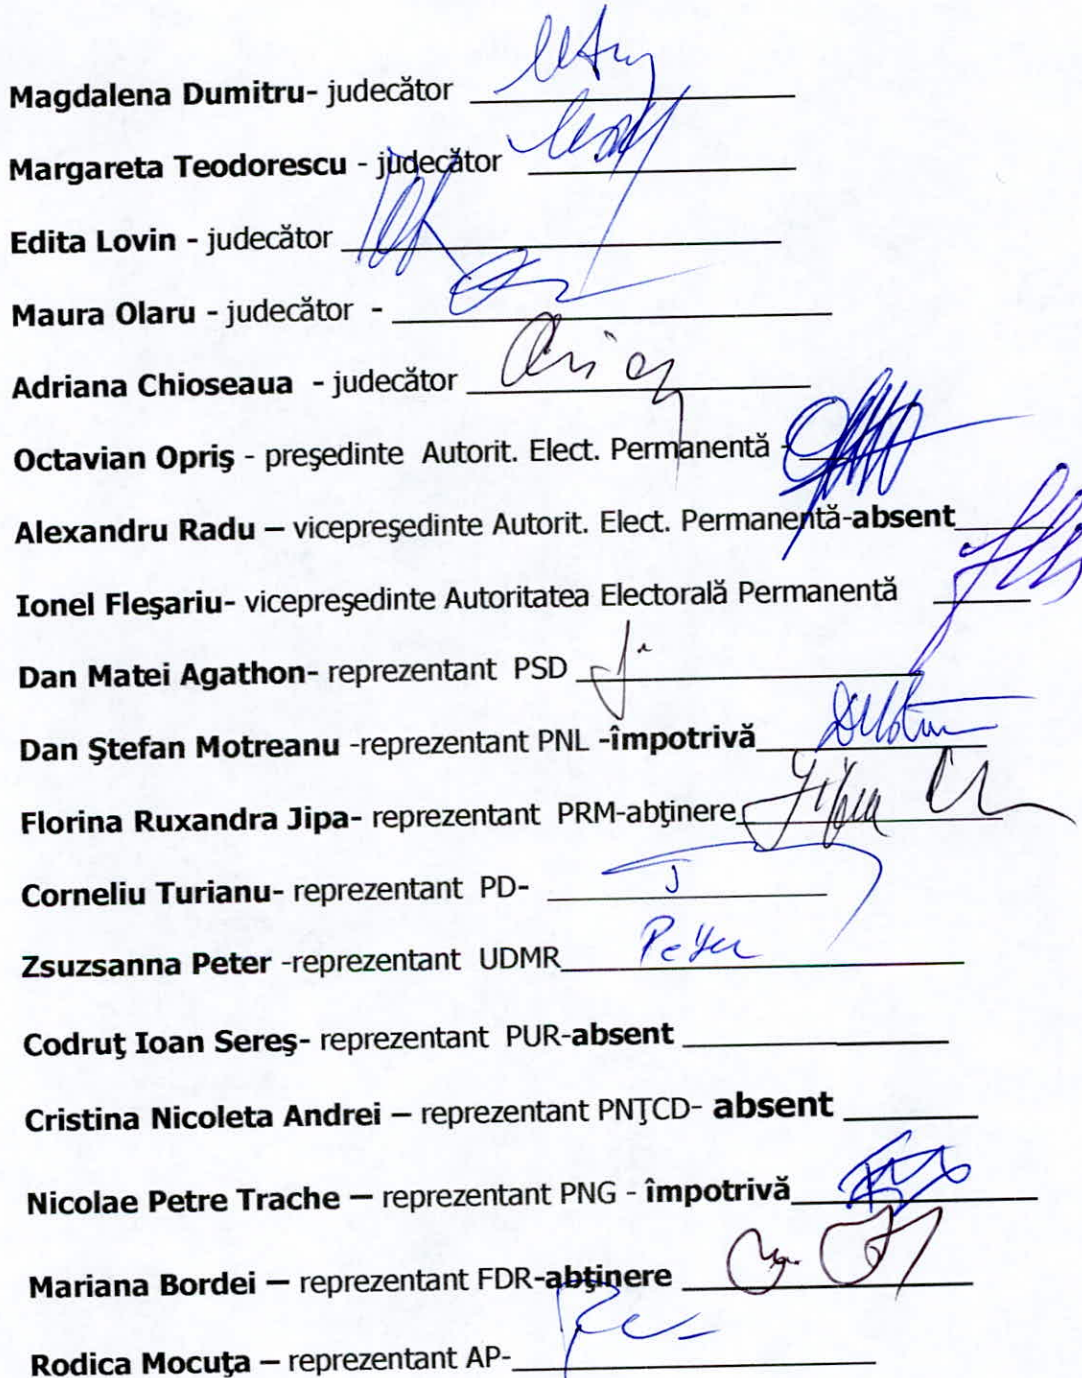 Magdalena Dumitru- judecător
Margareta Teodorescu - judecător
Edita Lovin - judecător
Maura Olaru - judecător -
Adriana Chioseaua - judecător
Octavian Opriş - preşedinte Autorit. Elect. Permanentă -
Alexandru Radu – vicepreşedinte Autorit. Elect. Permanentă-absent
Ionel Fleşariu- vicepreşedinte Autoritatea Electorală Permanentă
Dan Matei Agathon- reprezentant PSD
Dan Ştefan Motreanu -reprezentant PNL -împotrivă
Florina Ruxandra Jipa- reprezentant PRM-abţinere
Corneliu Turianu- reprezentant PD-
Zsuzsanna Peter -reprezentant UDMR Peter
Codruţ Ioan Sereş- reprezentant PUR-absent
Cristina Nicoleta Andrei – reprezentant PNŢCD- absent
Nicolae Petre Trache – reprezentant PNG - împotrivă
Mariana Bordei – reprezentant FDR-abţinere
Rodica Mocuţa – reprezentant AP-